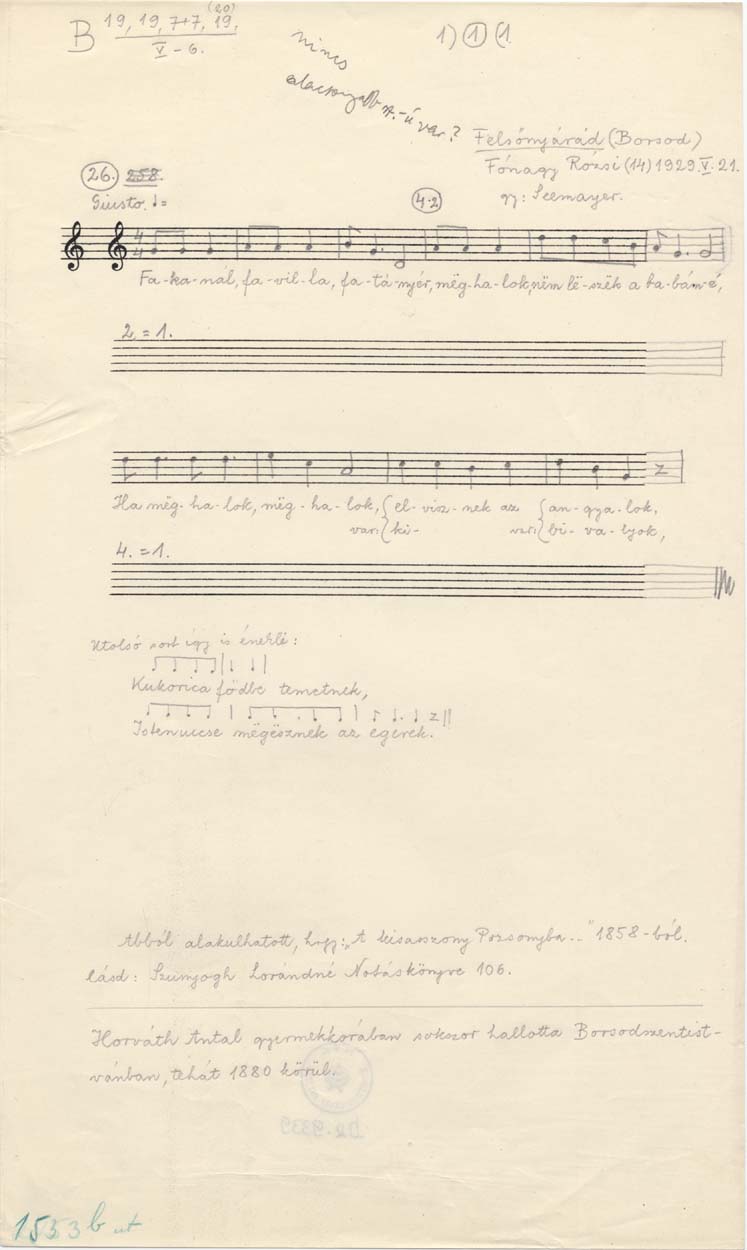 B 19, 19, 7+7, 19. (20)
V – 6.
1) ① (1.
nincs
alacsonyabb sz.-ú var.?
Felsőnyárád (Borsod)
Fónagy Rózsi (14) 1929. V. 21.
gy: Seemayer.
26. 258.
Giusto. ♩=
4·2
4/4
Fa-ka-nál, fa-vil-la, fa-tá-nyér, mëg-ha-lok, nëm lë-szëk a ba-bám-é,
2. = 1.
Ha mëg-ha-lok, mëg-ha-lok, {el-visz-nek az {an-gya-lok,
var: {ki- var: {bi-va-lyok,
4. = 1.
Utolsó sort így is énekli:
Kukorica födbe temetnek,
Istenuccse mëgësznek az egerek.
Abból alakulhatott, hogy: „A kisasszony Pozsonyba .." 1858-ból.
lásd: Szunyogh Lorándné Nótáskönyve 106.
Horváth Antal gyermekkorában sokszor hallotta Borsodszentist-
vánban, tehát 1880 körül.
1533 b